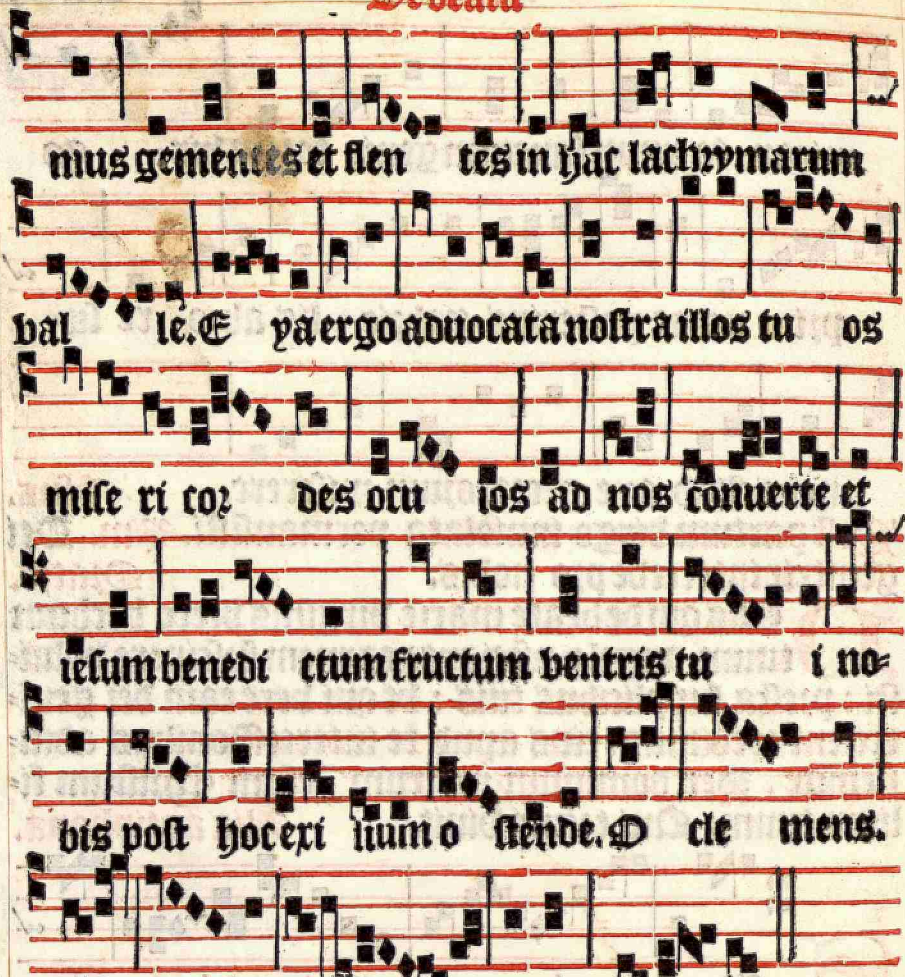 mus gementes et flen tes in hac lachrymarum
val le. E ya ergo aduocata nostra illos tu os
mise ri cor des ocu los ad nos conuerte et
iesum benedi ctum fructum ventris tu i no-
bis post hoc exi lium o stende. O cle mens.